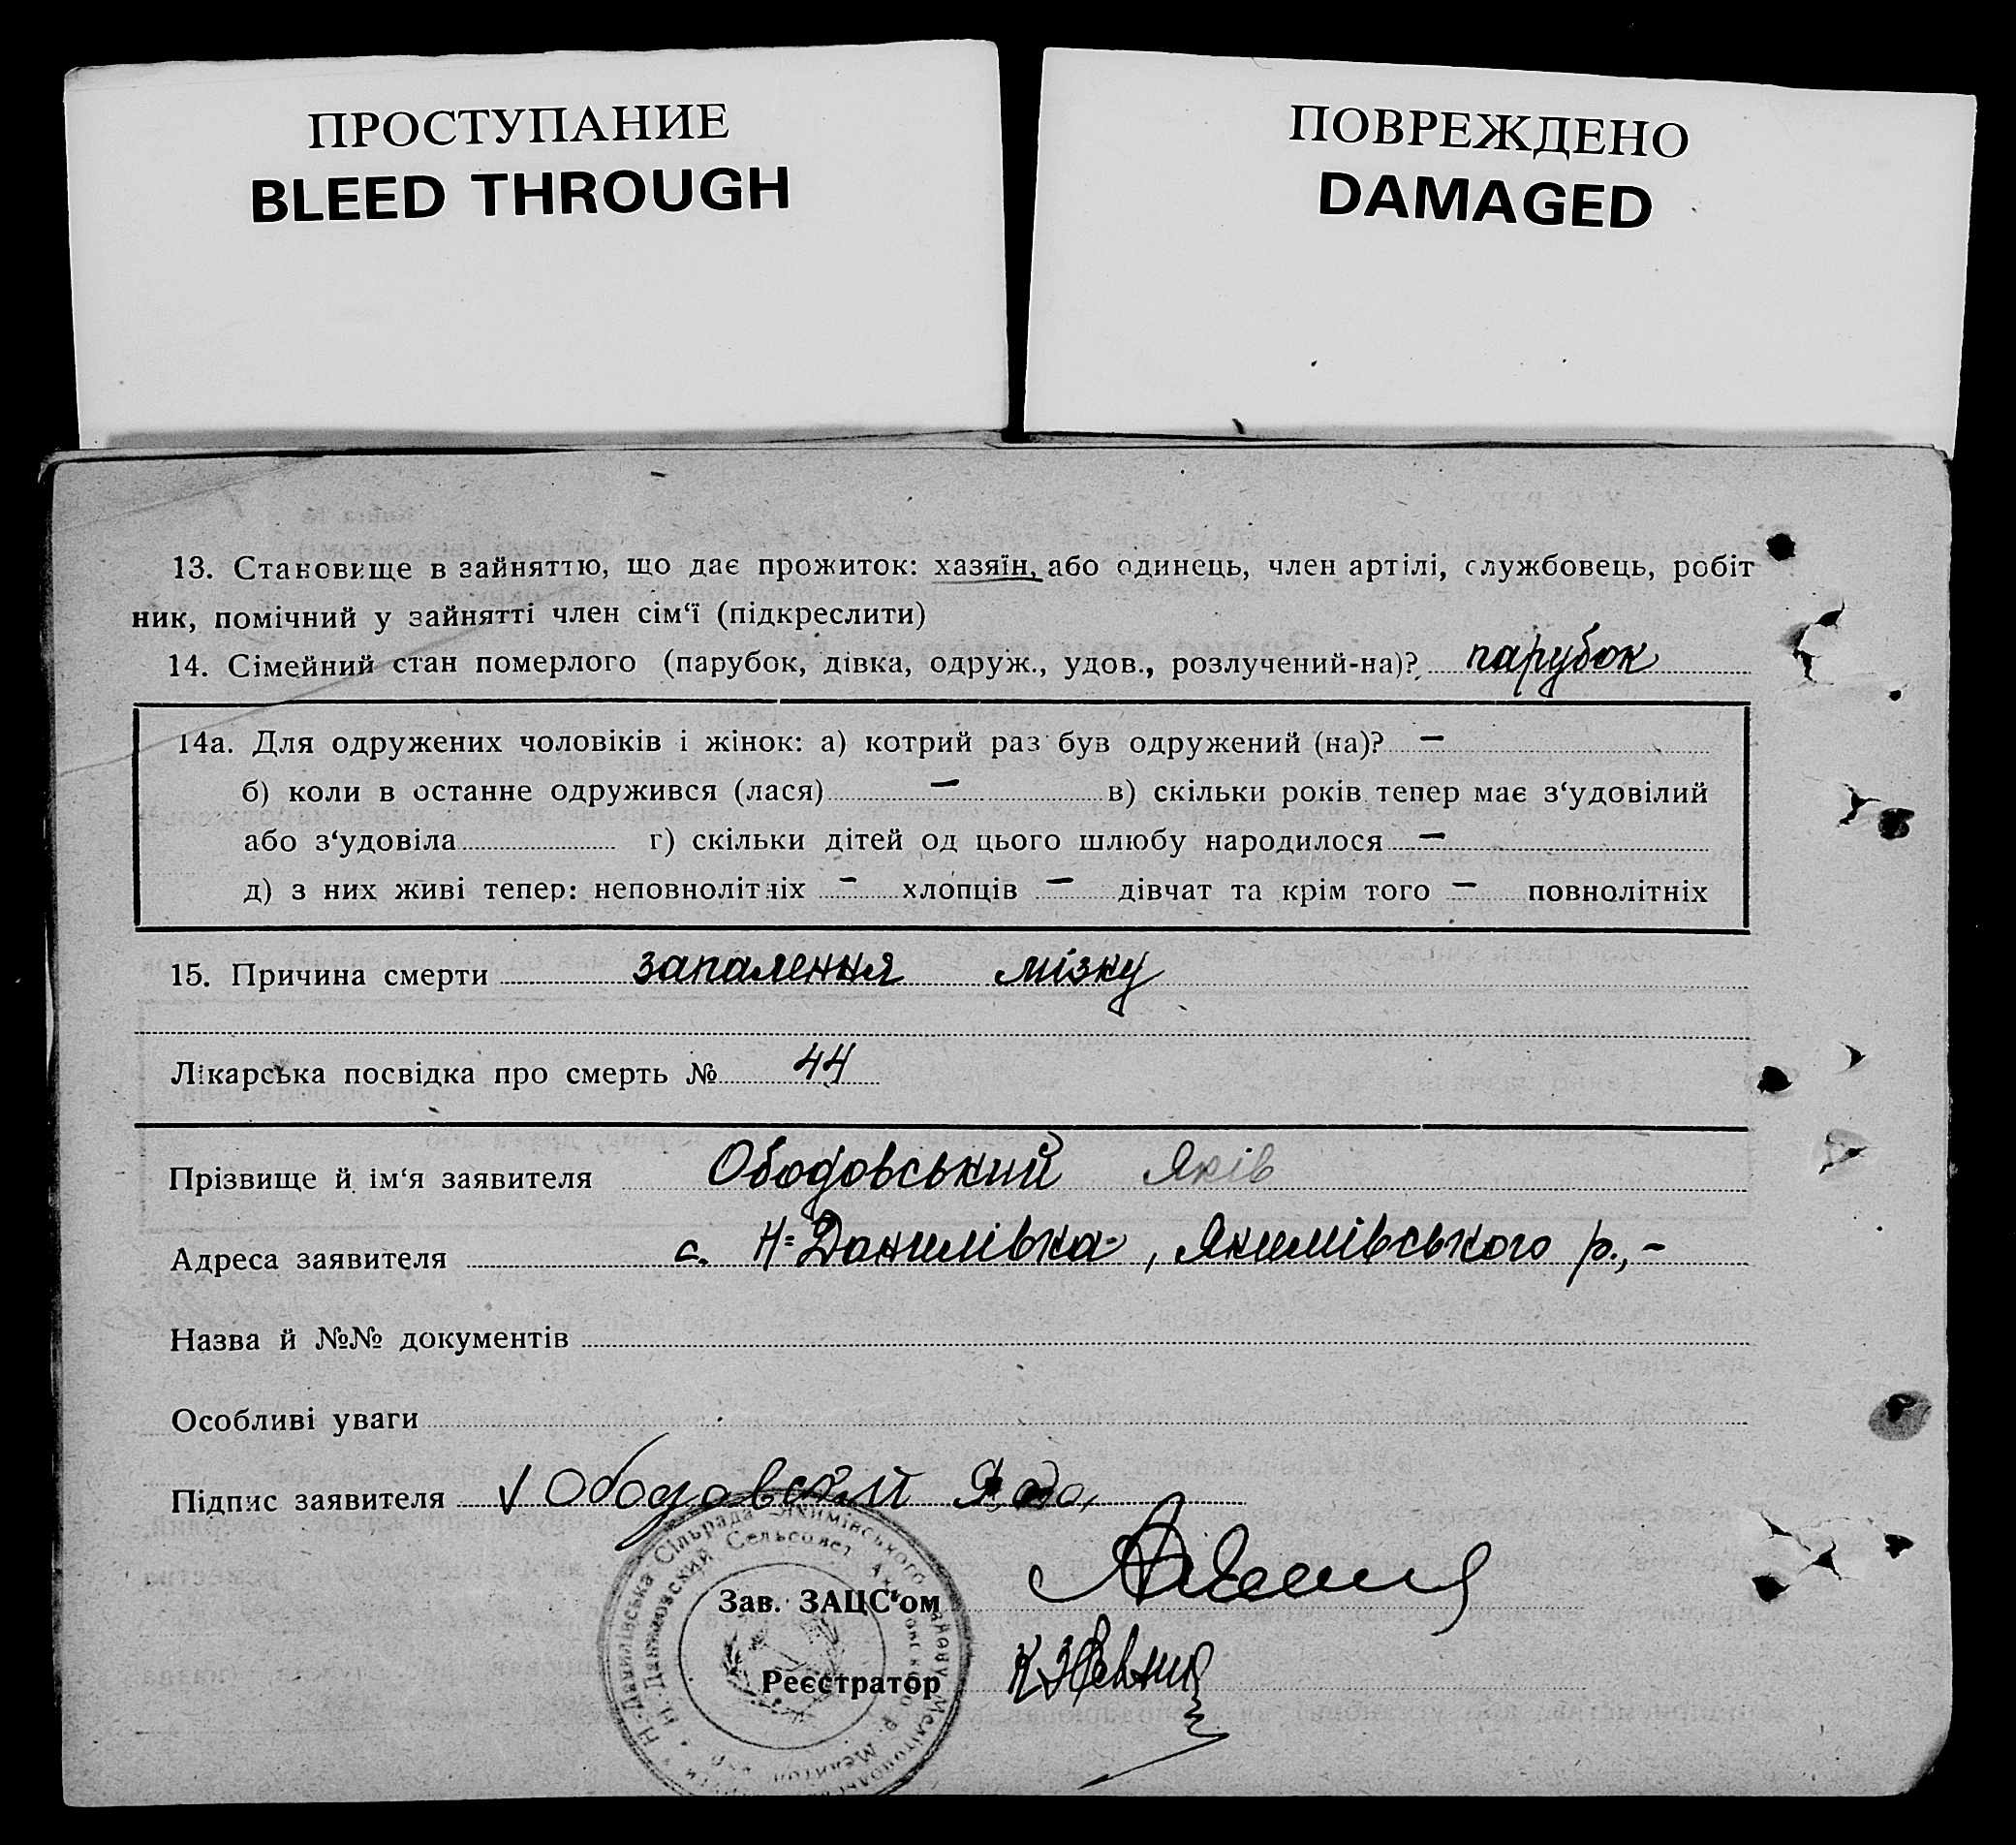 ПРОСТУПАНИЕ
BLEED THROUGH
ПОВРЕЖДЕНО
DAMAGED
13. Становище в зайняттю, що дає прожиток: хазяїн, або одинець, член артілі, службовець, робіт
ник, помічний у зайнятті член сім‘ї (підкреслити)
14. Сімейний стан померлого (парубок, дівка, одруж., удов., розлучений-на)? парубок
14а. Для одружених чоловіків і жінок: а) котрий раз був одружений (на)? —
б) коли в останне одружився (лася) — в) скільки років тепер має з‘удовілий
або з‘удовіла г) скільки дітей од цього шлюбу народилося —
д) з них живі тепер: неповнолітніх — хлопців — дівчат та крім того — повнолітніх
15. Причина смерти запалення мізку
Лікарська посвідка про смерть № 44
Прізвище й ім‘я заявителя Ободовський Яків
Адреса заявителя с. Н=Данилівка, Якимівського р., –
Назва й №№ документів
Особливі уваги
Підпис заявителя √ Ободовский
Н-Данилівська Сільрада Якимівського району Мелітопольсь
Н. Даниловский Сельсовет
Зав. ЗАЦС‘ом
Реєстратор